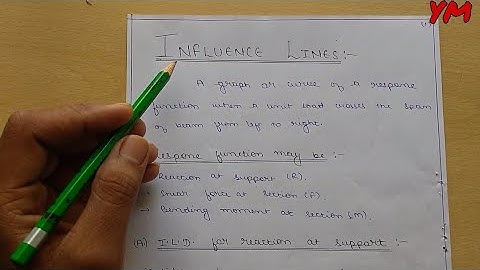 YM
INFLUENCE LINES:-
A graph or curve of a respone
function when a unit load moves the span
of beam from left to right.
Respone function may be :-
Reaction at support (R).
→ Shear force at section (F).
→ Bending moment at section (M).
(A) I.L.D. for reaction at support :-